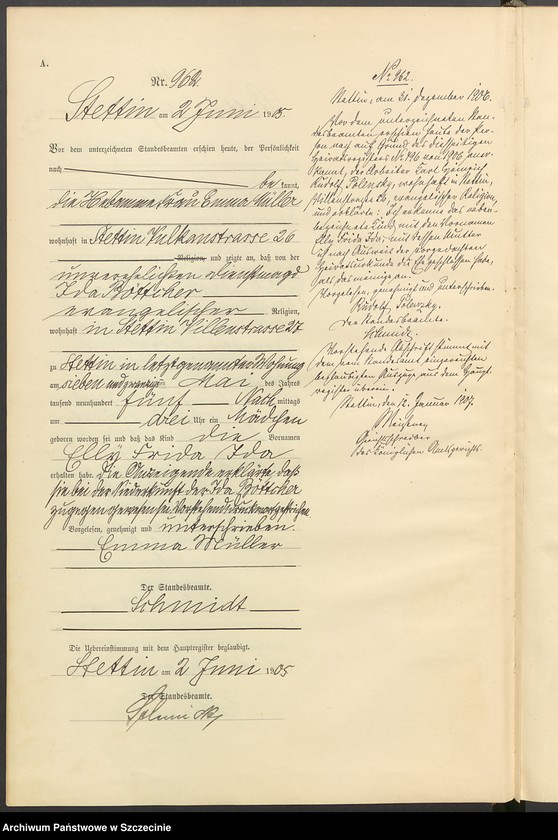 A.
Nr. 962.
Stettin am 2 Juni 1905.
Vor dem unterzeichneten Standesbeamten erschien heute, der Persönlichkeit
nach
be kannt,
die Hebamme Frau Emma Müller
wohnhaft in Stettin Vulkanstrasse 26
Religion, und zeigte an, daß von der
unverehelichten Dienstmagd
Ida Böttcher
evangelischer Religion,
wohnhaft in Stettin Villenstrasse 27
zu Stettin in letztgenannter Wohnung
am sieben und zwanzig Mai des Jahres
tausend neunhundert fünf Nachmittags
um drei Uhr ein Mädchen
geboren worden sei und daß das Kind die Vornamen
Elly Frida Ida
erhalten habe. Die Anzeigende erklärte, daß
sie bei der Niederkunft der Ida Böttcher
zugegen gewesen sei. Vorstehend Druckwort gestrichen.
Vorgelesen, genehmigt und unterschrieben.
Emma Müller
Der Standesbeamte.
Schmidt
Die Uebereinstimmung mit dem Hauptregister beglaubigt.
Stettin am 2 Juni 1905
Der Standesbeamte.
No 962.
Stettin, am 31. Dezember 1906.
Vor dem unterzeichneten Stan-
desbeamten erschien heute der Per-
son nach auf Grund des diesseitigen
Heiratsregisters No 446 von 1906 aner-
kannt, der Arbeiter Carl Heinrich
Rudolf Polensky, wohnhaft in Stettin,
evangelischer Religion,
und erklärte: Ich erkenne das neben-
bezeichnete Kind, mit den Vornamen
Elly Frida Ida, mit dessen Mutter
ich nach Ausweis der vorgelegten
Heiratsurkunde die Ehe geschlossen habe,
als das meinige an.
Vorgelesen, genehmigt und unterschrieben.
Rudolf Polensky.
Der Standesbeamte.
Schmidt.
Vorstehende Abschrift stimmt mit
dem vom Standesamt eingereichten
beglaubigten Auszuge aus dem Haupt-
register überein.
Stettin, den 12. Januar 1907.
Gerichtsschreiber
des Königlichen Amtsgerichts.
Archiwum Państwowe w Szczecinie